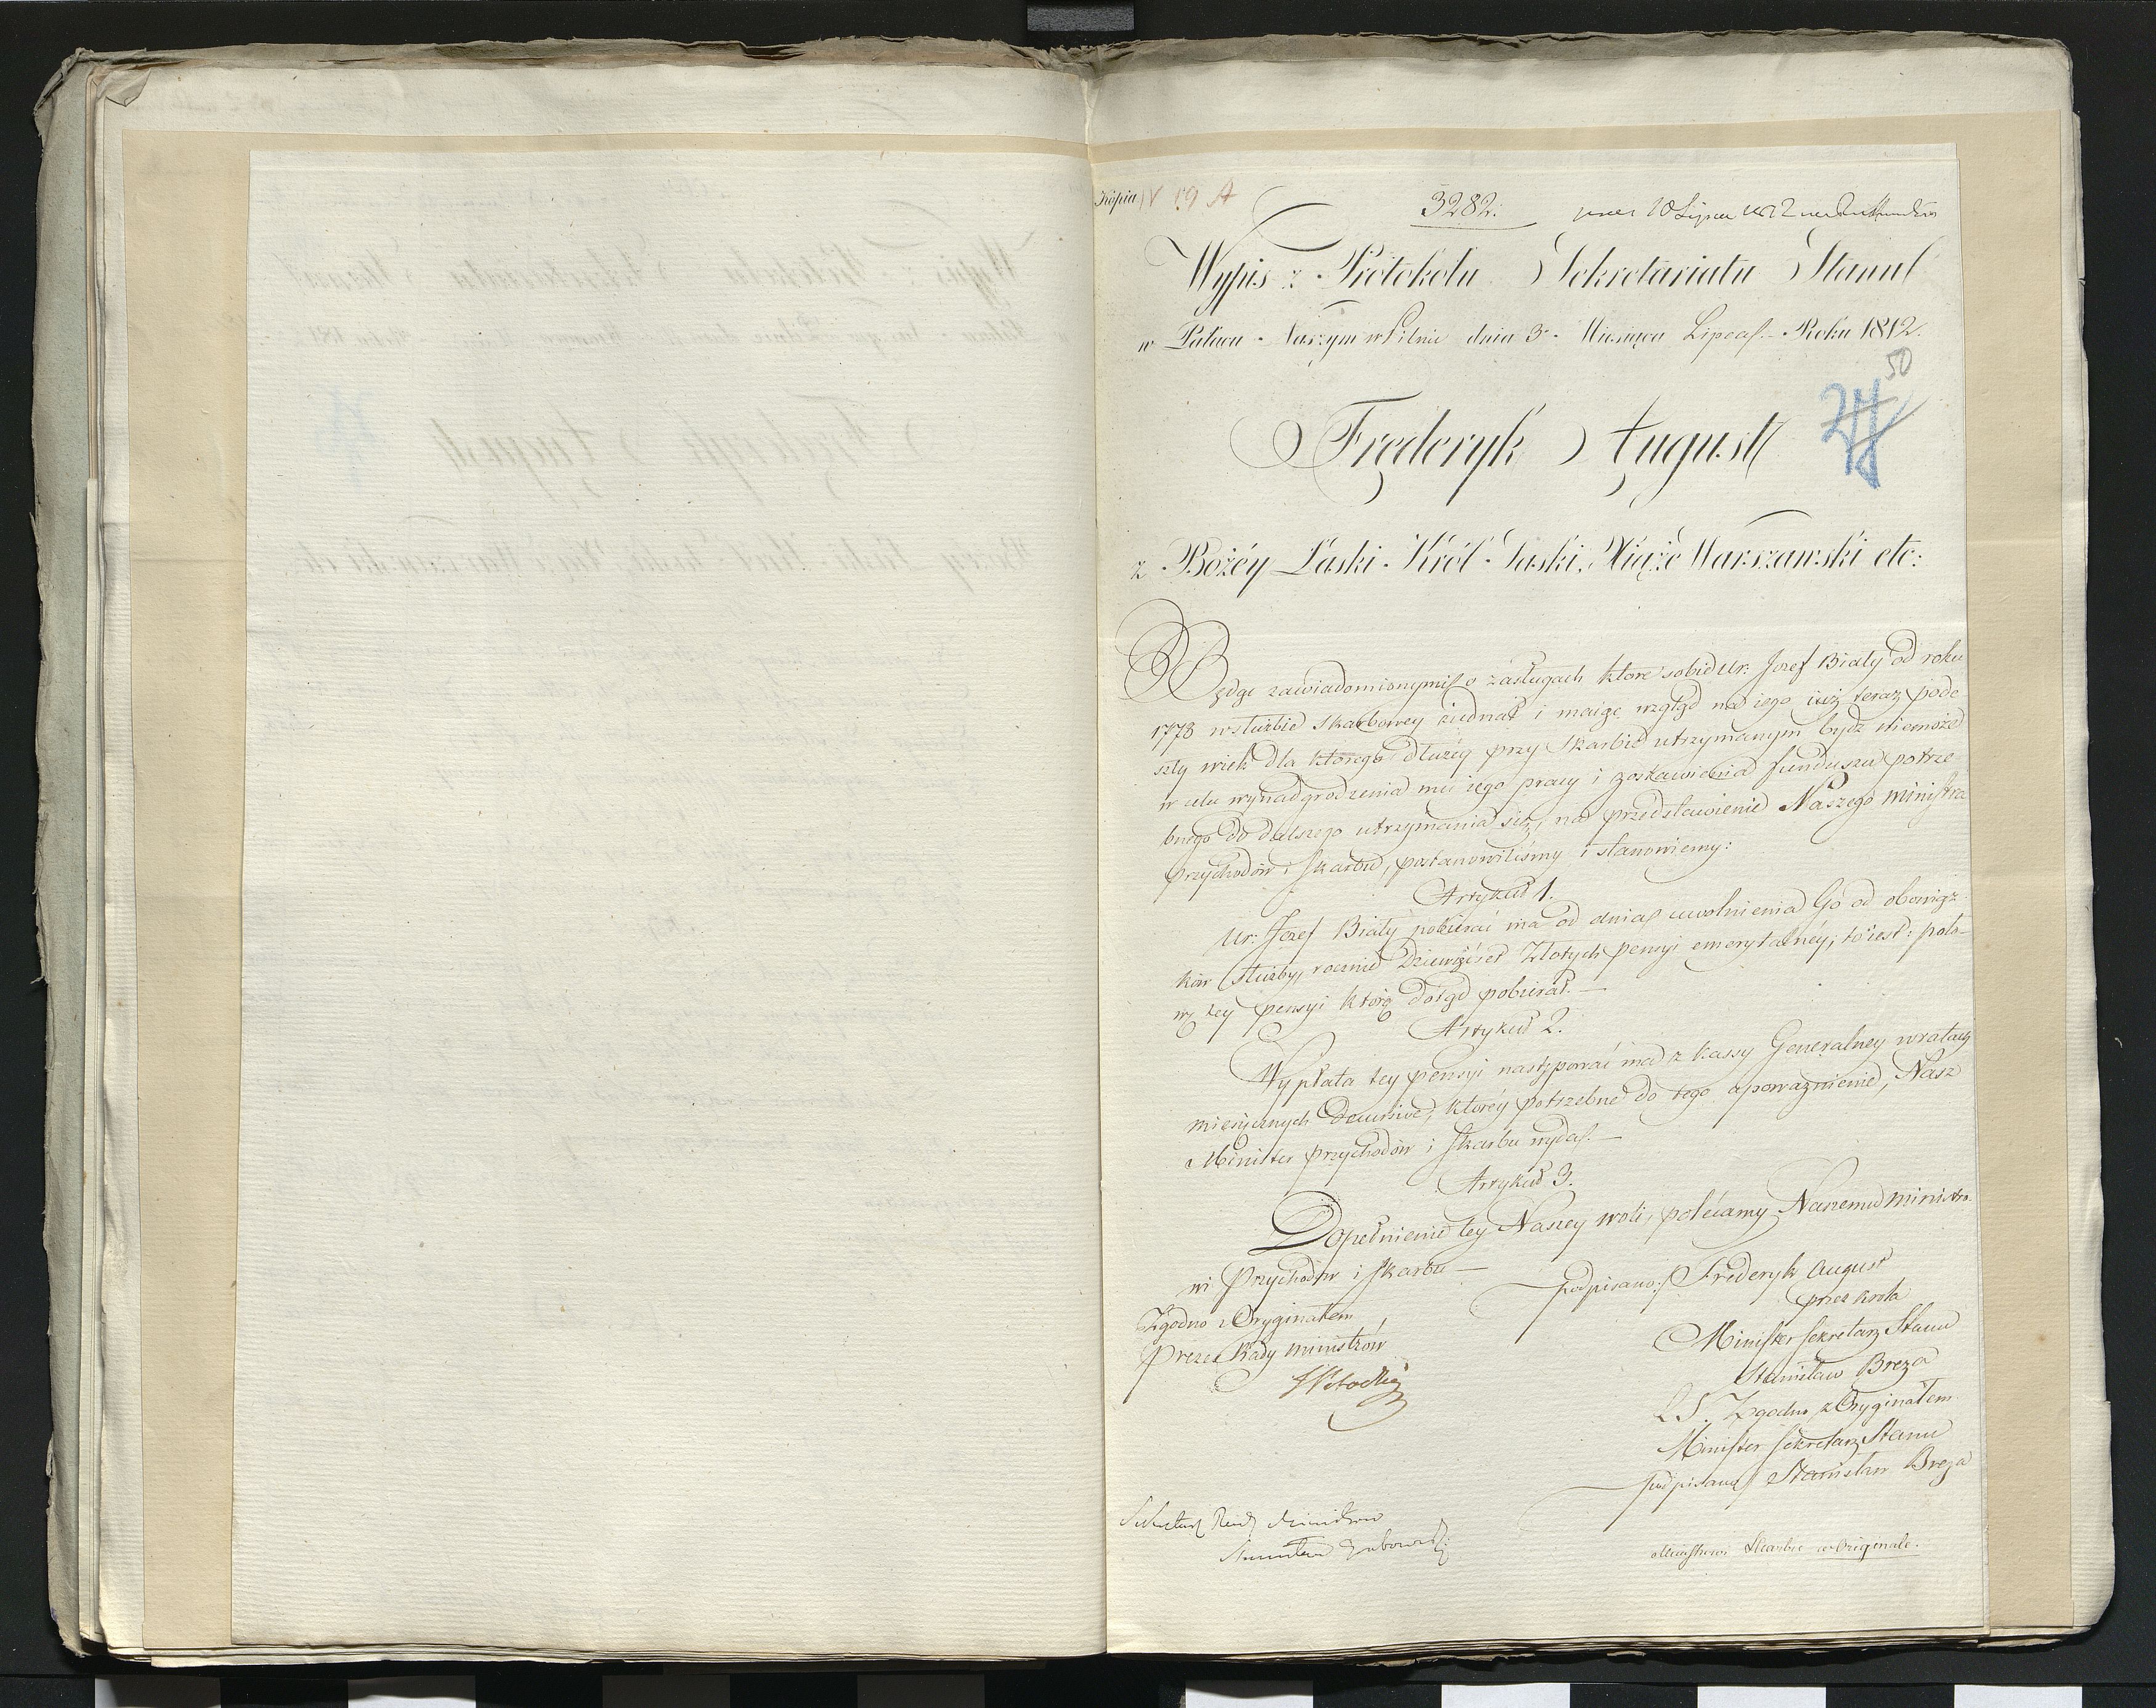 Kopia IV 19 A
3282. 10 Lipca 1812
Wypis z Protokołu Sekretariatu Stanu
w Pałacu Naszym w Pilnic dnia 3. Miesiąca Lipca Roku 1812.
50
Fręderyk August
z Bożéy Łaski Król Saski, Xiąże Warszawski etc:
Będąc zawiadomionymi o zasługach które sobie Ur: Jozef Biały od roku
1778 w służbie skarbowey ziednał i maiąc wzgląd na iego iuż teraz pode
szły wiek dla którego dłużey przy skarbie utrzymanym bydz niemoże
w celu wynadgrodzenia mu iego pracy i zostawienia funduszu potrze
bnego do dalszego utrzymania się, na przedstawienie Naszego Ministra
Przychodów i Skarbu, postanowiliśmy i stanowiemy:
Artykuł 1.
Ur: Jozef Biały pobierać ma od dnia uwolnienia Go od obowiąz
ków służby, rocznie Dziewięćset Złotych pensyi emerytalnéy, to iest: poło-
wę tey pensyi którą dotąd pobierał. —
Artykuł 2.
Wypłata tey pensyi następować ma z kassy Generalney w ratach
miesięcznych decursive, któréy potrzebne do tego upoważnienie, Nasz
Minister Przychodów i Skarbu wyda. —
Artykuł 3.
Dopełnienie tey Naszey woli, polécamy Naszemu Ministro
wi Przychodów i Skarbu —
podpisano: Frederyk August
Zgodno z Oryginałem
przez Krola
Prezes Rady Ministrów
Minister Sekretarz Stanu
Stanisław Breza
L S. Zgodno z Oryginałem
Minister Sekretarz Stanu
podpisano Stanisław Breza
Sekretarz Rady Ministrow
Skarbu w Originale.